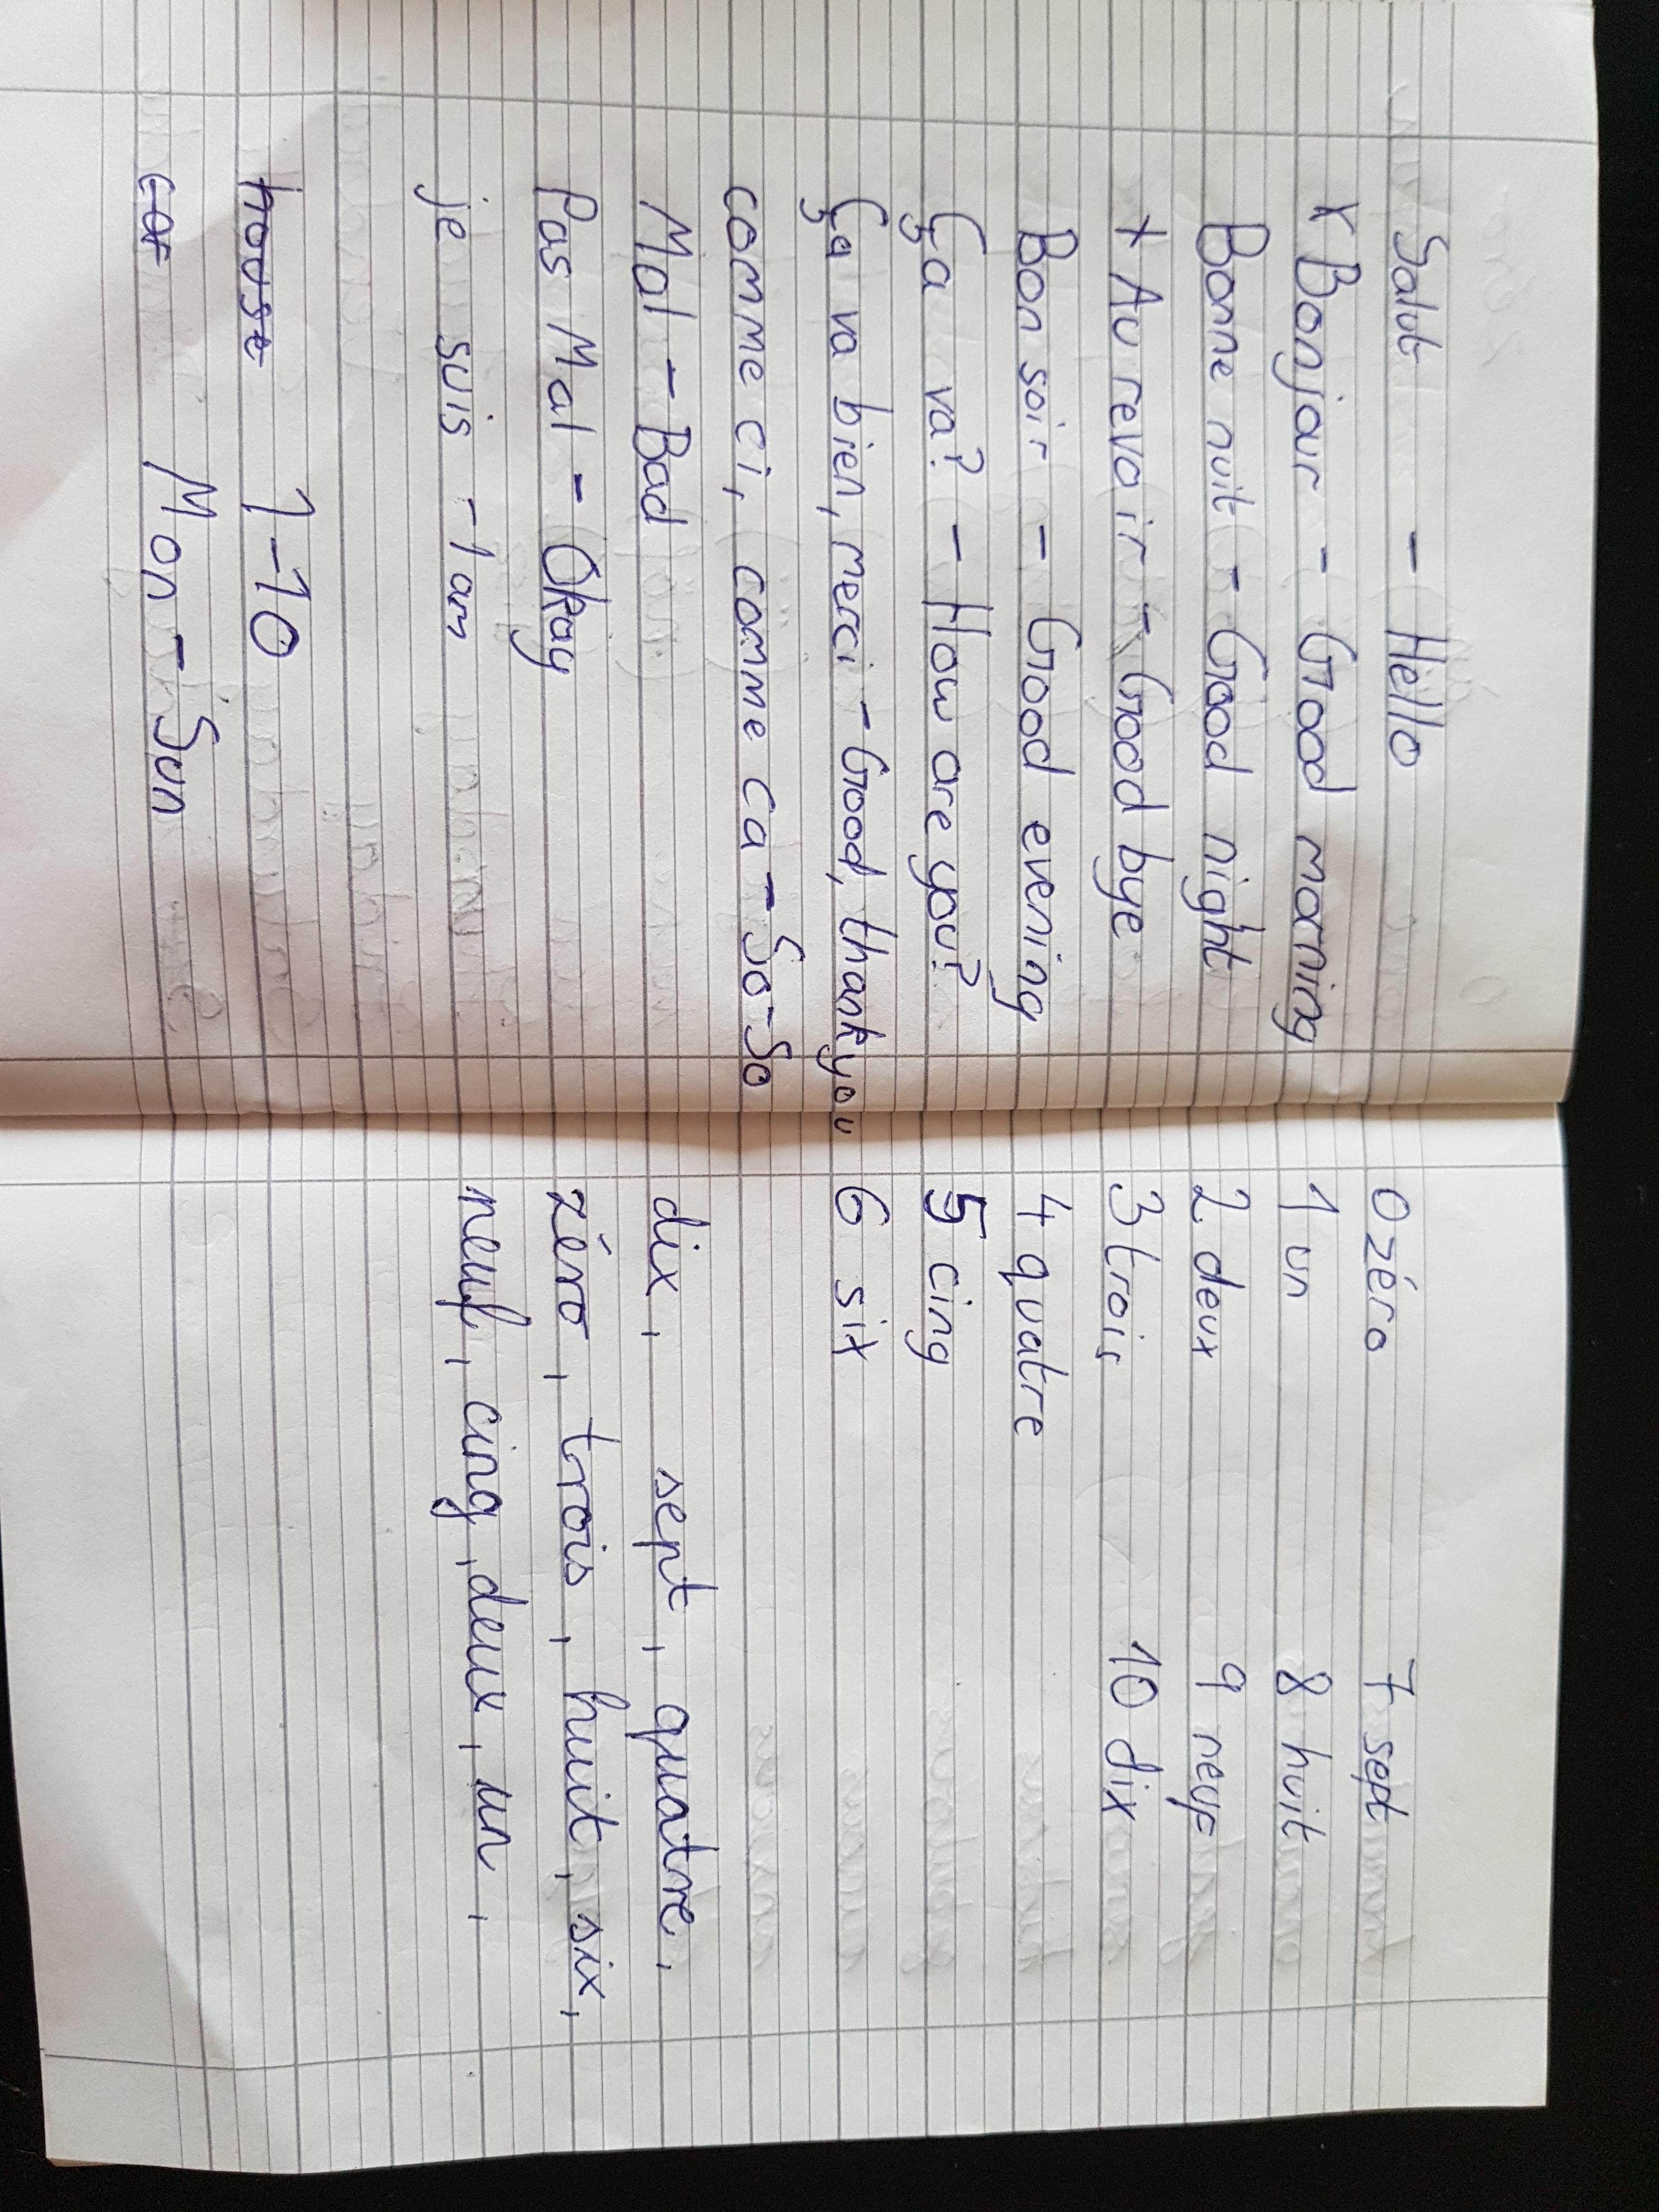 Salut - Hello
x Bonjour - Good morning
Bonne nuit - Good night
+ Au revoir - Good bye
Bon soir - Good evening
Ça va? - How are you?
Ça va bien, merci - Good, thank you
comme ci, comme ca - So-So
Mal - Bad
Pas Mal - Okay
je suis - I am
house 1-10
car Mon - Sun
0 zéro 7 sept
1 un 8 huit
2 deux 9 neuf
3 trois 10 dix
4 quatre
5 cinq
6 six
dix, sept, quatre,
zéro, trois, huit, six,
neuf, cinq, deux, un,